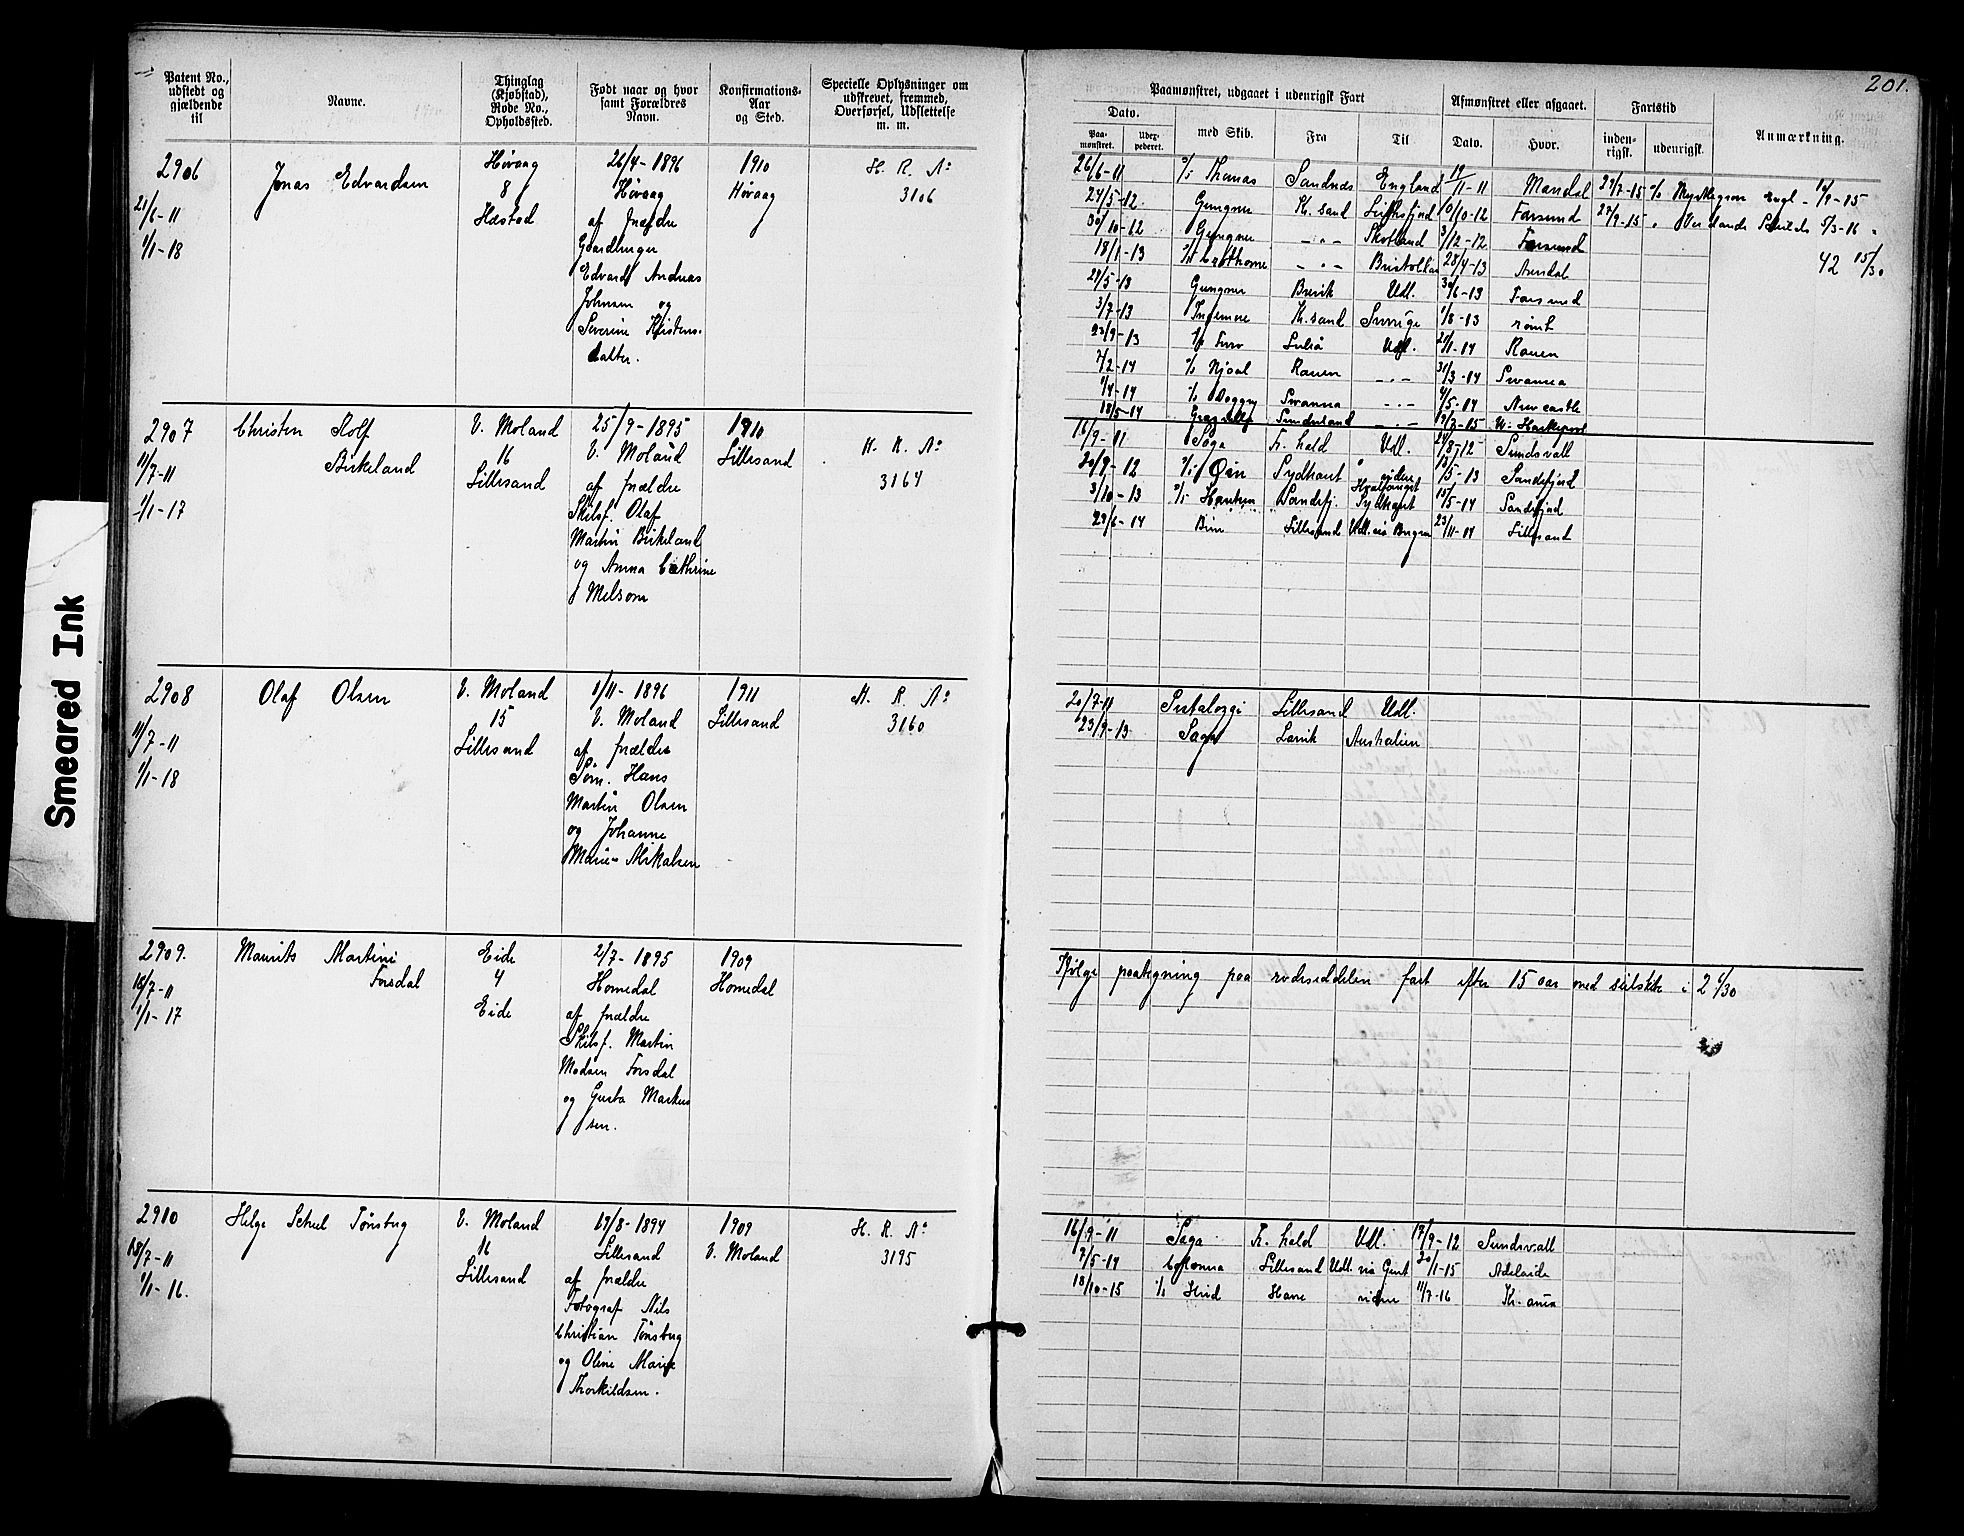 201.
Patent No., udstedt og gjældende til
Navne.
Thinglag (Kjøbstad), Rode No., Opholdssted.
Født naar og hvor samt Forældres Navn.
Konfirmations-Aar og Sted.
Specielle Oplysninger om udskrevet, fremmed, Overførsel, Udslettelse m. m.
Paamønstret, udgaaet i udenrigsk Fart
Dato.
Paa-mønstret.
Udex-pederet.
med Skib.
Fra
Til
Afmønstret eller afgaaet.
Dato.
Hvor.
Fartstid
inden-rigsk.
udenrigsk.
Anmærkning.
Smeared Ink
2906
21/6-11
1/1-18
Jonas Edvardsen
Høvaag
8
Hæstad
26/4-1896
Høvaag
af forældre
Gaardbruger
Edvardt Andreas
Johnsen og
Severine Kristens-
datter.
1910
Høvaag
H. R. No
3106
26/6-11 Thomas Sandnæs England 11-11 Mandal 27/7-15 Engl. 9-15
24/5-12 Gungner K. sand 10/10-12 Farsund 27/9-15 5/3-16
30/10-12 Gungner - " - Skotland 3/12-12 Farsund
18/1-13 - " - 28/4-13 Arendal 42 15/30
29/5-13 Gungner Udl. 30/6-13 Farsund
3/7-13 K. sand Sverige 1/8-13 rømt
23/9-13 Luleå Udl. Rouen
7/2-14 Njaal Rouen - " - 31/3-14 Swansea
1/4-14 Swansea - " - 4/5-14 Newcastle
10/5-14 Sunderland - " - W. Hartlepool
2907
11/7-11
1/1-17
Christen Rolf
Birkeland
V. Moland
16
Lillesand
25/9-1895
V. Moland
af forældre
Skibsf. Olaf
Martin Birkeland
og Anna Cathrine
Melsom
1910
Lillesand
H. R. No
3164
16/9-11 Saga Fr. hald Udl. 24/8-12 Sundsvall
20/9-12 Ørn Sydkant videre 13/5-13 Sandefjord
Hvalfanget
3/10-13 Sandefj. Sydhavet 15/5-14 Sandefjord
29/6-14 Lillesand Udl. via 23/11-14 Lillesand
2908
11/7-11
1/1-18
Olaf Olsen
V. Moland
15
Lillesand
1/11-1896
V. Moland
af forældre
Søm. Hans
Martin Olsen
og Johanne
Marie Mikalsen
1911
Lillesand
H. R. No
3160
20/7-11 Pestalozzi Lillesand Udl.
23/9-13 Saga Larvik Australien
2909.
18/7-11
1/1-17
Maurits Martini
Forsdal
Eide
4
Eide
2/7-1895
Homedal
af forældre
Skibsf. Martin
Madsen Forsdal
og Gusta Markus
sen.
1909
Homedal
Ifølge paategning paa rodeseddelen fart efter 15 aar med seilskibe i 2 6/30
2910
18/7-11
1/1-16.
Helge Schul Tønsberg
V. Moland
16
Lillesand
19/8-1894
Lillesand
af forældre
Fotograf Nils
Christian Tønsberg
og Oline Marie
Thorkildsen.
1909
V. Moland
H. R. No
3195
16/9-11 Saga Fr. hald Udl. 17/9-12 Sundsvall
7/5-14 Colonna Lillesand Udl. via Gent 20/1-15 Adelaide
18/10-15 Havre videre 11/7-16 Kr.-ania